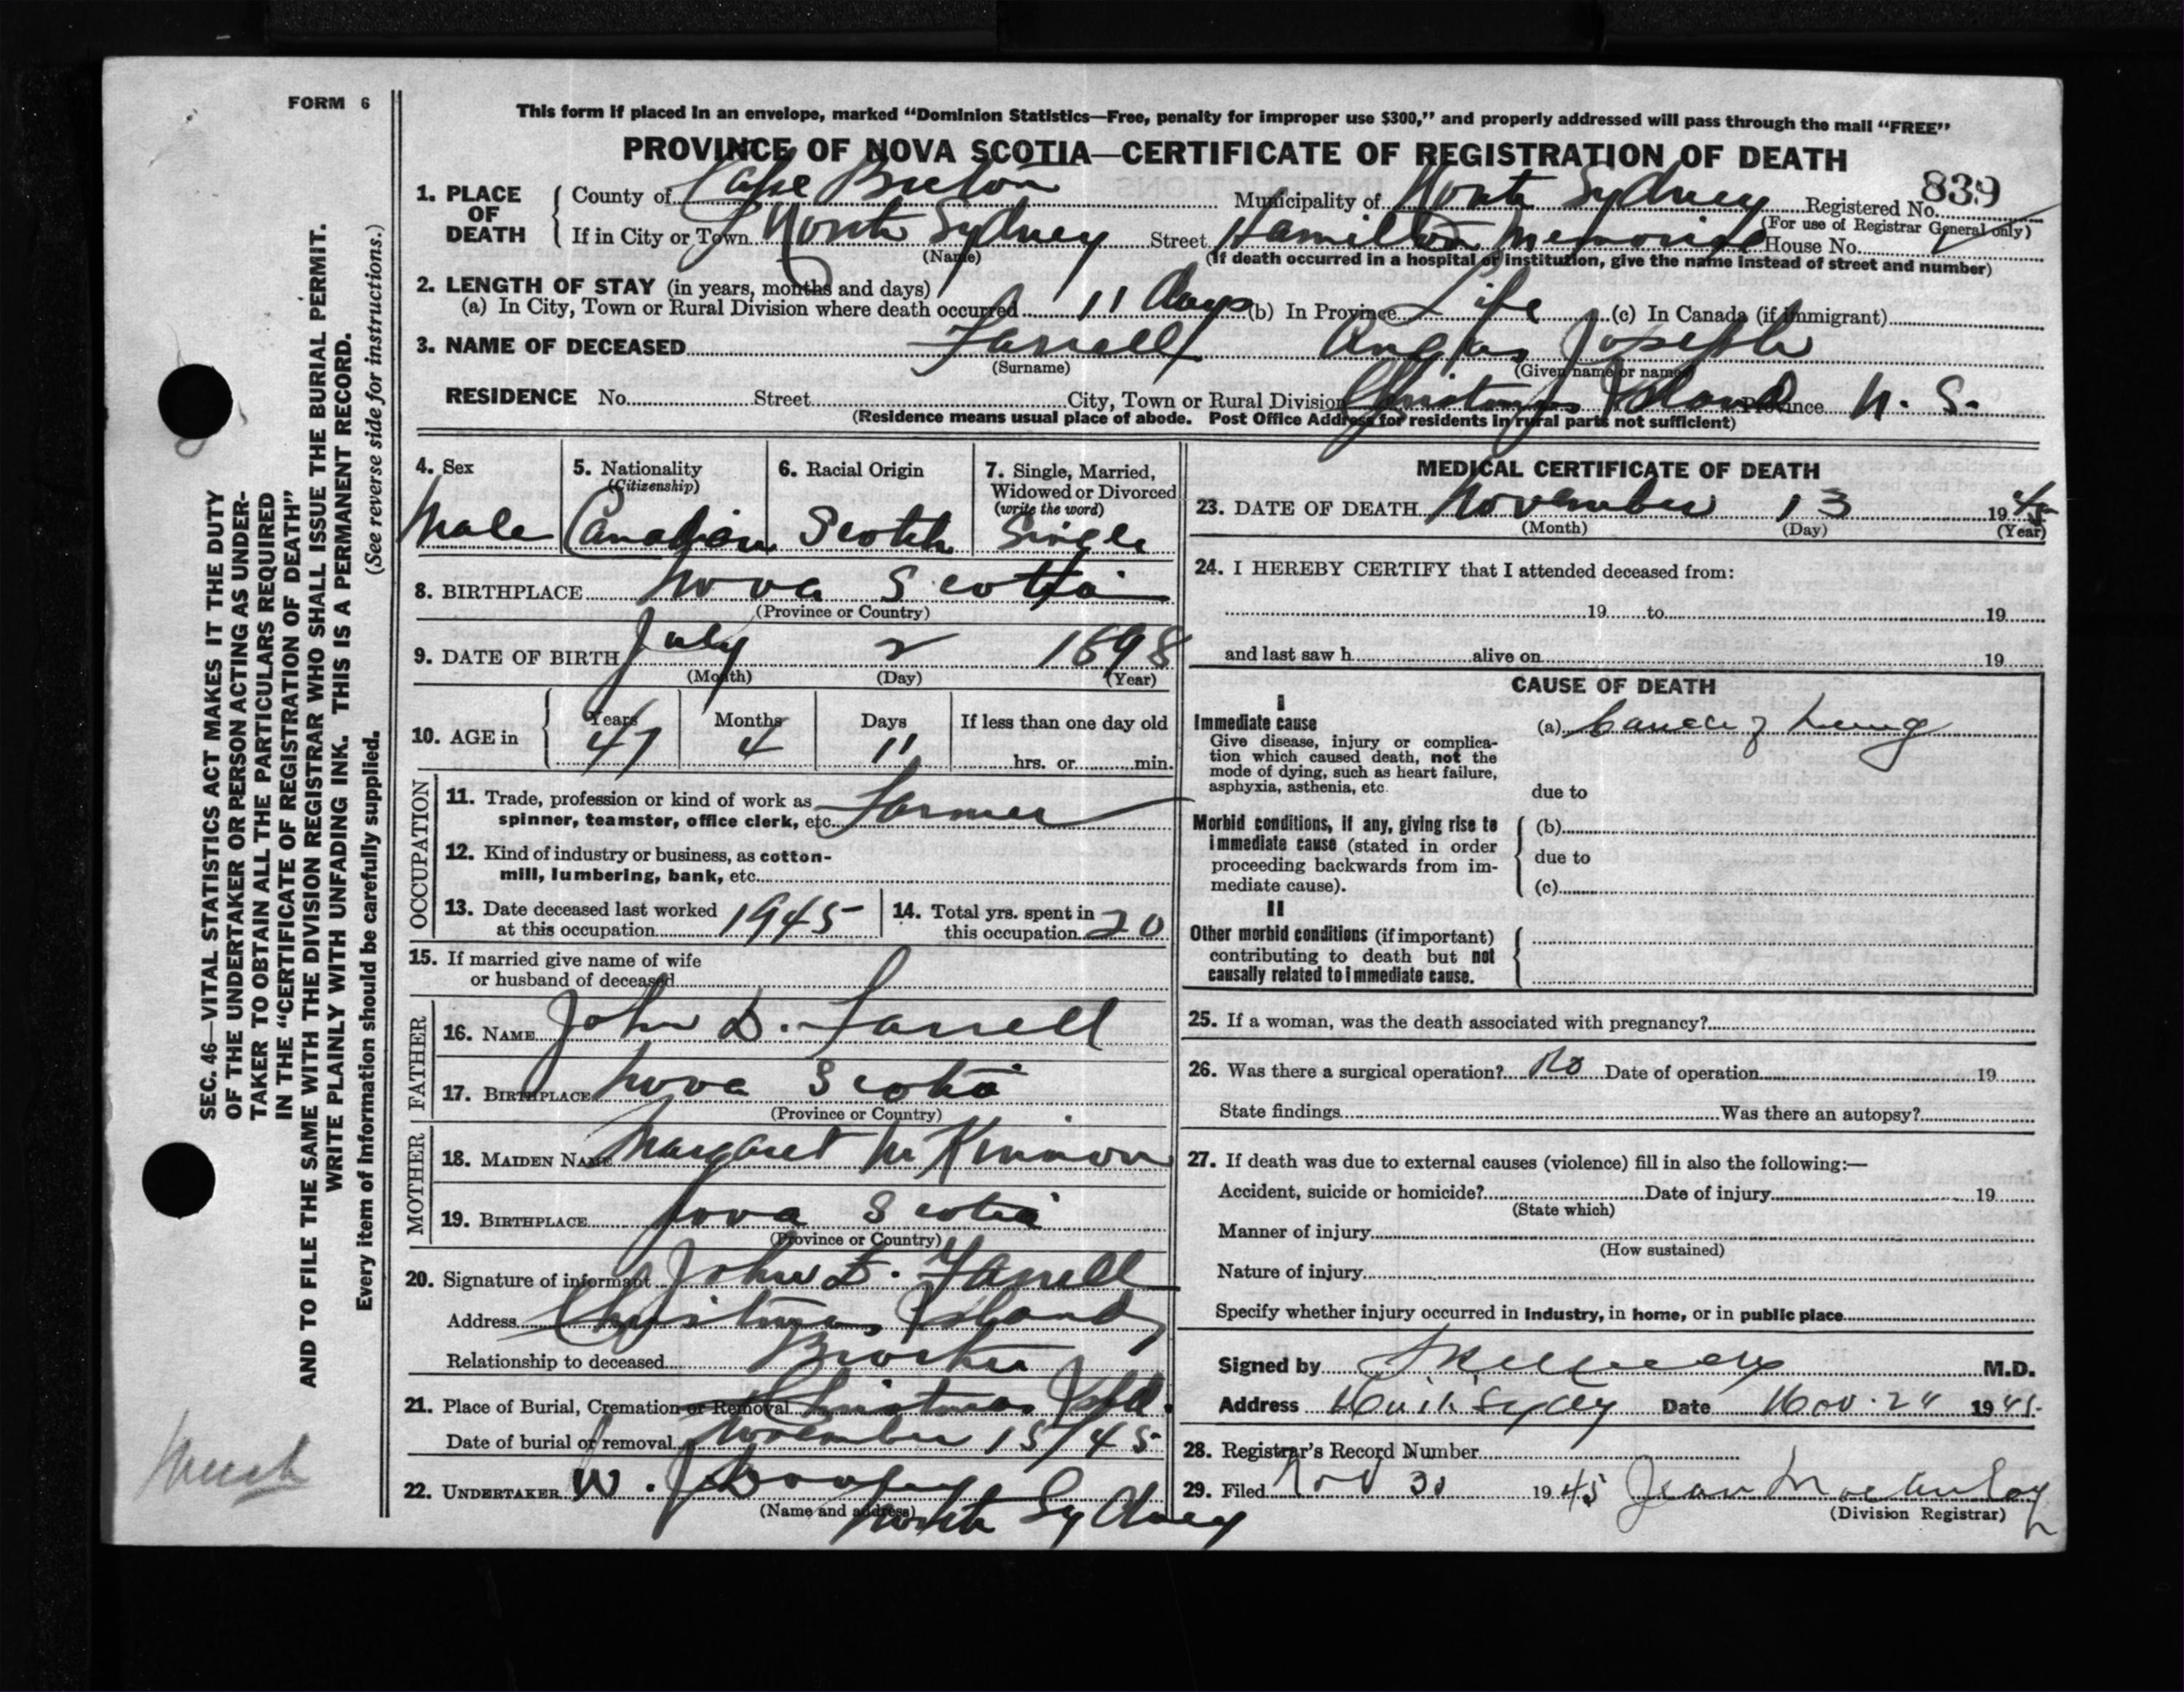 FORM 6
This form if placed in an envelope, marked "Dominion Statistics—Free, penalty for improper use $300," and properly addressed will pass through the mail "FREE"
PROVINCE OF NOVA SCOTIA—CERTIFICATE OF REGISTRATION OF DEATH
839
1. PLACE OF DEATH County of Cape Breton Municipality of North Sydney Registered No.
(For use of Registrar General only)
If in City or Town North Sydney Street Hamilton Memorial House No.
(Name) (If death occurred in a hospital or institution, give the name instead of street and number)
2. LENGTH OF STAY (in years, months and days)
(a) In City, Town or Rural Division where death occurred 11 days (b) In Province Life (c) In Canada (if immigrant)
3. NAME OF DECEASED Farrell Angus Joseph
(Surname) (Given name or names)
RESIDENCE No. Street City, Town or Rural Division Christmas Island Province N. S.
(Residence means usual place of abode. Post Office Address for residents in rural parts not sufficient)
4. Sex 5. Nationality (Citizenship) 6. Racial Origin 7. Single, Married, Widowed or Divorced (write the word)
Male Canadian Scotch Single
8. BIRTHPLACE Nova Scotia
(Province or Country)
9. DATE OF BIRTH July 2 1898
(Month) (Day) (Year)
10. AGE in Years Months Days If less than one day old
47 4 11 hrs. or min.
OCCUPATION
11. Trade, profession or kind of work as
spinner, teamster, office clerk, etc. Farmer
12. Kind of industry or business, as cotton-
mill, lumbering, bank, etc.
13. Date deceased last worked
at this occupation 1945
14. Total yrs. spent in
this occupation 20
15. If married give name of wife
or husband of deceased
FATHER
16. NAME John D. Farrell
17. BIRTHPLACE Nova Scotia
(Province or Country)
MOTHER
18. MAIDEN NAME Margaret McKinnon
19. BIRTHPLACE Nova Scotia
(Province or Country)
20. Signature of informant John D. Farrell
Address Christmas Island
Relationship to deceased Brother
21. Place of Burial, Cremation or Removal Christmas Isld.
Date of burial or removal November 15/45
22. UNDERTAKER W. J. Dooley
(Name and address) North Sydney
MEDICAL CERTIFICATE OF DEATH
23. DATE OF DEATH November 13 1945
(Month) (Day) (Year)
24. I HEREBY CERTIFY that I attended deceased from:
19 to 19
and last saw h alive on 19
CAUSE OF DEATH
I
Immediate cause (a) Cancer of Lung
Give disease, injury or complica-
tion which caused death, not the
mode of dying, such as heart failure,
asphyxia, asthenia, etc.
due to
Morbid conditions, if any, giving rise to (b)
immediate cause (stated in order
proceeding backwards from im- due to
mediate cause). (c)
II
Other morbid conditions (if important)
contributing to death but not
causally related to immediate cause.
25. If a woman, was the death associated with pregnancy?
26. Was there a surgical operation? No Date of operation 19
State findings Was there an autopsy?
27. If death was due to external causes (violence) fill in also the following:—
Accident, suicide or homicide? Date of injury 19
(State which)
Manner of injury
(How sustained)
Nature of injury
Specify whether injury occurred in industry, in home, or in public place
Signed by M.D.
Address North Sydney Date Nov. 24 1945
28. Registrar's Record Number
29. Filed Nov 30 1945 Jean MacAulay
(Division Registrar)
SEC. 46—VITAL STATISTICS ACT MAKES IT THE DUTY
OF THE UNDERTAKER OR PERSON ACTING AS UNDER-
TAKER TO OBTAIN ALL THE PARTICULARS REQUIRED
IN THE "CERTIFICATE OF REGISTRATION OF DEATH"
AND TO FILE THE SAME WITH THE DIVISION REGISTRAR WHO SHALL ISSUE THE BURIAL PERMIT.
WRITE PLAINLY WITH UNFADING INK. THIS IS A PERMANENT RECORD.
Every item of information should be carefully supplied. (See reverse side for instructions.)